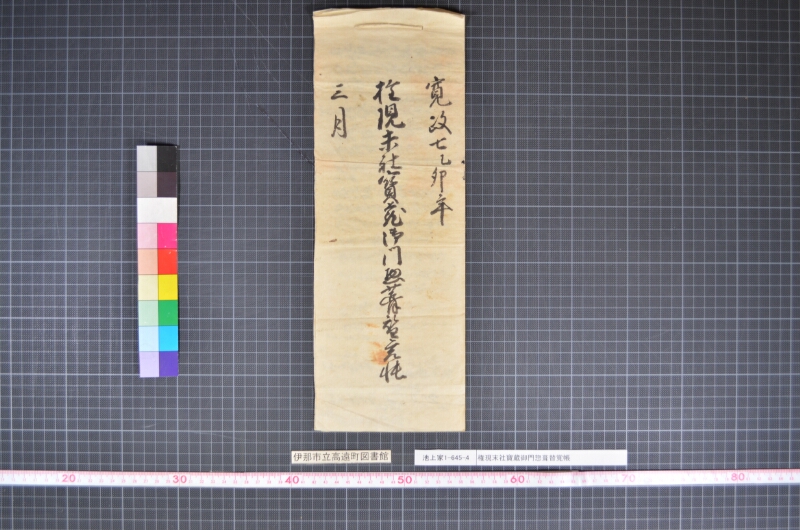 寛政七乙卯年
権現末社質蔵御門惣葺替覚帳
三月
伊那市立高遠町図書館
池上家1-645-4
権現末社質蔵御門惣葺替覚帳
20 30 40 50 60 70 80